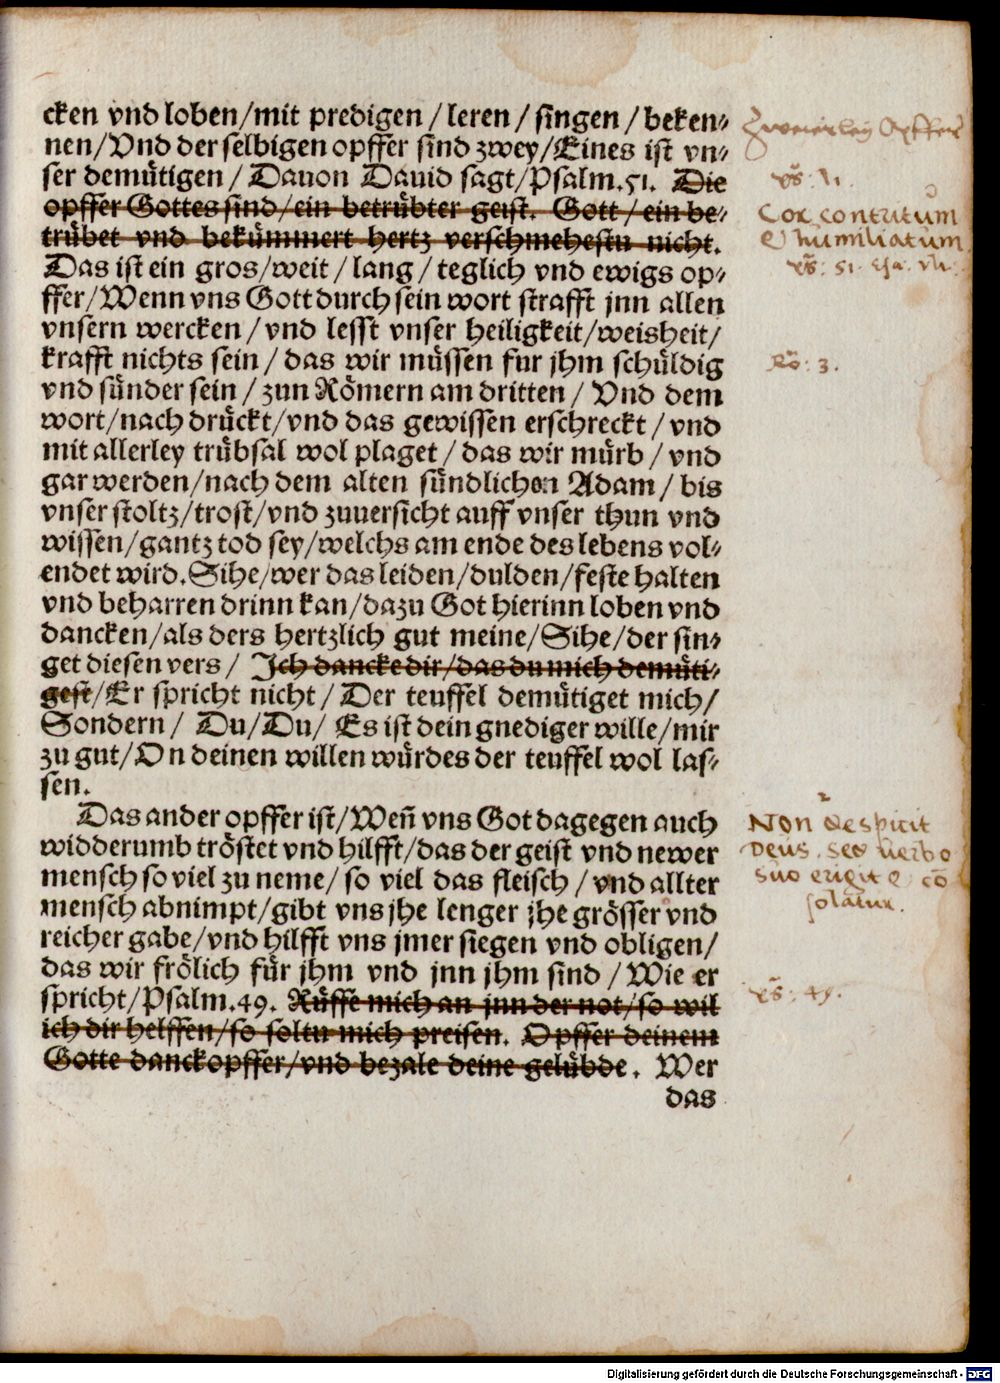 cken vnd loben/mit predigen/leren/singen/beken⸗
nen/Vnd der selbigen opffer sind zwey/Eines ist vn⸗
ser demütigen/Dauon Dauid sagt/Psalm.51. Die
opffer Gottes sind/ein betrübter geist. Gott/ein be⸗
trübet vnd bekümmert hertz verschmehestu nicht.
Das ist ein gros/weit/lang/teglich vnd ewigs op⸗
ffer/Wenn vns Gott durch sein wort strafft jnn allen
vnsern wercken/vnd lesst vnser heiligkeit/weisheit/
krafft nichts sein/das wir müssen fur jhm schüldig
vnd sünder sein/zun Römern am dritten/Vnd dem
wort/nach drückt/vnd das gewissen erschreckt/vnd
mit allerley trübsal wol plaget/das wir mürb/vnd
gar werden/nach dem alten sündlichen Adam/bis
vnser stoltz/trost/vnd zuuersicht auff vnser thun vnd
wissen/gantz tod sey/welchs am ende des lebens vol⸗
endet wird. Sihe/wer das leiden/dulden/feste halten
vnd beharren drinn kan/dazu Got hierinn loben vnd
dancken/als ders hertzlich gut meine/Sihe/der sin⸗
get diesen vers/Ich dancke dir/das du mich demüti⸗
gest/Er spricht nicht/Der teuffel demütiget mich/
Sondern/Du/Du/Es ist dein gnediger wille/mir
zu gut/On deinen willen würdes der teuffel wol las⸗
sen.
Das ander opffer ist/Weñ vns Got dagegen auch
widderumb tröstet vnd hilfft/das der geist vnd newer
mensch so viel zu neme/so viel das fleisch/vnd allter
mensch abnimpt/gibt vns jhe lenger jhe grösser vnd
reicher gabe/vnd hilfft vns jmer siegen vnd obligen/
das wir frölich für jhm vnd jnn jhm sind/Wie er
spricht/Psalm.49. Rüffe mich an jnn der not/so wil
ich dir helffen/so soltu mich preisen. Opffer deinem
Gotte danckopffer/vnd bezale deine gelübde. Wer
das
Zweierley Opffer
Cor contritum
& humiliatum
Ro: 3.
Non despicit
Deus. sed verbo
suo erigit & cō
solatur.
ps: 49.
Digitalisierung gefördert durch die Deutsche Forschungsgemeinschaft - DFG